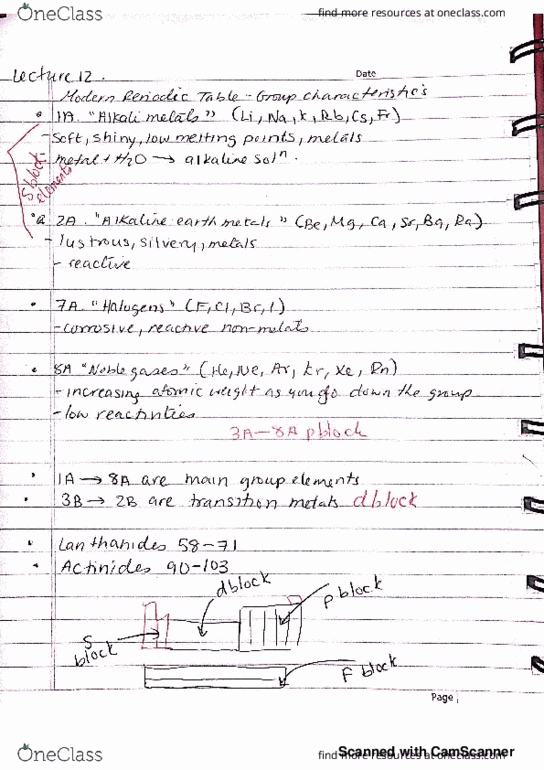 OneClass
find more resources at oneclass.com
Lecture 12.
Date
Modern Periodic Table - Group Characteristic's
1A. "Alkali metals" (Li, Na, K, Rb, Cs, Fr)
- Soft, shiny, low melting points, metals
metal + H2O → alkaline solⁿ.
S block elements
2A. "Alkaline earth metals" (Be, Mg, Ca, Sr, Ba, Ra)
- lustrous, silvery, metals
- reactive
7A. "Halogens" (F, Cl, Br, I)
- corrosive, reactive non-metals
8A "Noble gases" (He, Ne, Ar, Kr, Xe, Rn)
- increasing atomic weight as you go down the group
- low reactivities
3A-8A p block
1A → 8A are main group elements
3B → 2B are transition metals d block
Lanthanides 58-71
Actinides 90-103
d block
p block
S block
F block
Page
OneClass
find more resources at oneclass.com
Scanned with CamScanner